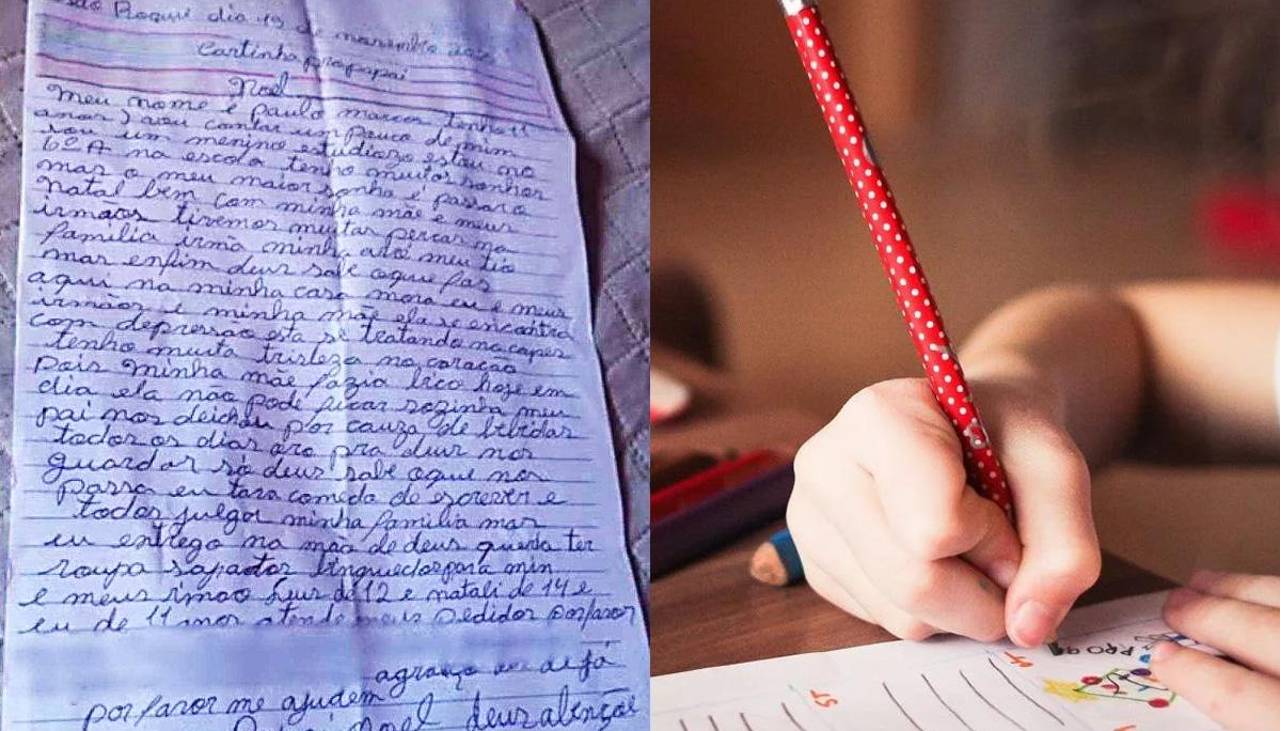 Piaqui dia 19 de
Cartinha pra papai
Noel
Meu nome é paulo marcos tenho 11
anos) vou contar um pouco de mim
sou um menino estudiozo estou no
6º A na escola tenho muitos sonhos
mas o meu maior sonho é passar o
natal bem com minha mãe e meus
irmãos tivemos muitas percas na
familia irmã minha avó meu tio
mas enfim deus sabe oque faz
aqui na minha casa mora eu e meus
irmãos e minha mãe ela se encontra
com depressão esta se tratando no capes
tenho muita tristeza no coração
pois minha mãe fazia bico hoje em
dia ela não pode ficar sozinha meu
pai nos deichou por cauza de bebidas
todos os dias oro pra deus nos
guardar só deus sabe oque nos
passa eu comedo de escrever e
todos julgar minha familia mas
eu entrego na mão de deus queria ter
roupa sapatos para min
e meus irmão de 12 e natali de 14 e
eu de 11 anos atende meus pedidos por favor
por favor me ajudem
noel deus